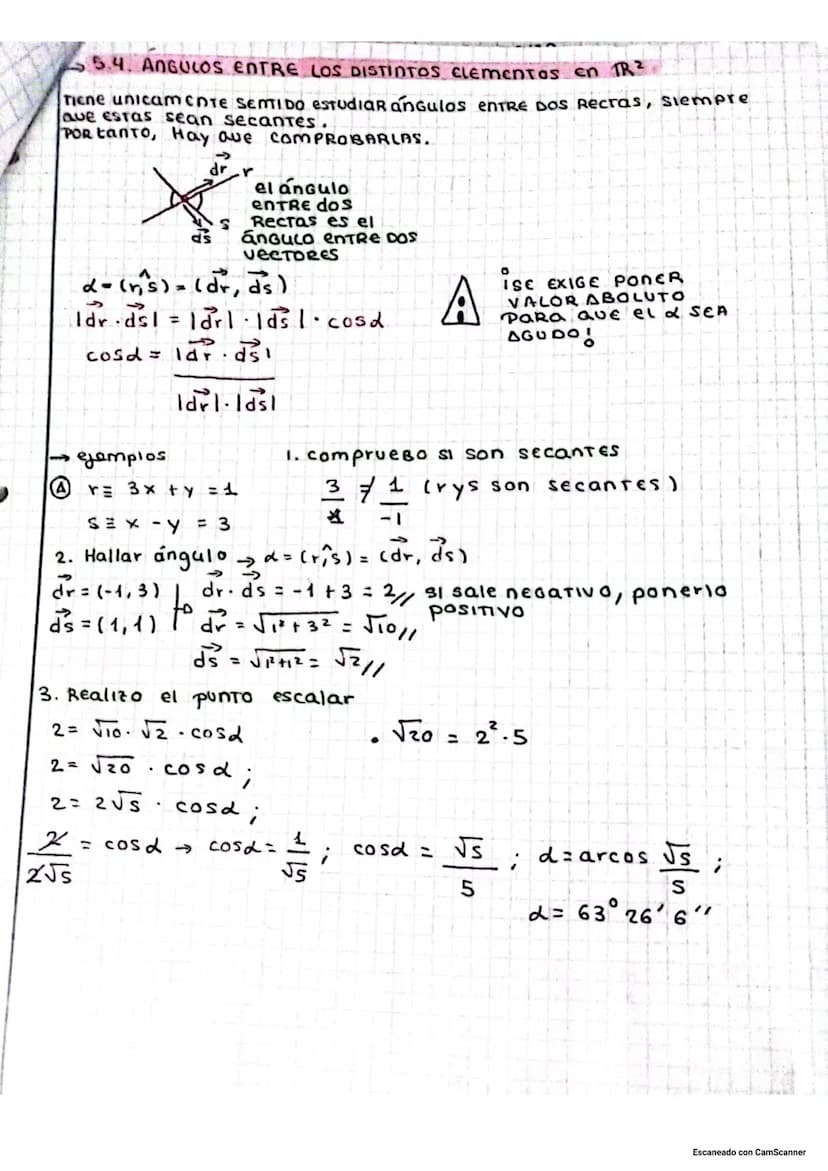 → 5.4. ÁNGULOS ENTRE LOS DISTINTOS ELEMENTOS EN ℝ²
TIENE UNICAMENTE SEMTIDO ESTUDIAR ÁNGULOS ENTRE DOS RECTAS, SIEMPRE
QUE ESTAS SEAN SECANTES.
POR TANTO, HAY QUE COMPROBARLAS.
d⃗r r
s
d⃗s
el ÁNGULO
ENTRE DOS
RECTAS ES EL
ÁNGULO ENTRE DOS
VECTORES
α = (r,^s) = (d⃗r, d⃗s)
|d⃗r · d⃗s| = |d⃗r| · |d⃗s| · cosα
cosα = |d⃗r · d⃗s|
|d⃗r| · |d⃗s|
¡SE EXIGE PONER
VALOR ABOLUTO
PARA QUE EL α SEA
AGUDO!
→ ejemplos
1. COMPRUEBO SI SON SECANTES
Ⓐ r ≡ 3x + y = 1
3/1 ≠ 1/-1 (r y s son secantes)
s ≡ x - y = 3
2. Hallar ángulo → α = (r,^s) = (d⃗r, d⃗s)
d⃗r = (-1, 3) d⃗r · d⃗s = -1 + 3 = 2// si sale negativo, ponerlo
positivo
d⃗s = (1, 1) d⃗r = √1² + 3² = √10//
d⃗s = √1²+1² = √2//
3. Realizo el punto escalar
2 = √10 · √2 · cosα
• √20 = 2² · 5
2 = √20 · cosα;
2 = 2√5 · cosα;
2/2√5 = cosα → cosα = 1/√5 ; cosα = √5/5 ; α = arcos √5/5 ;
α = 63° 26' 6''
Escaneado con CamScanner